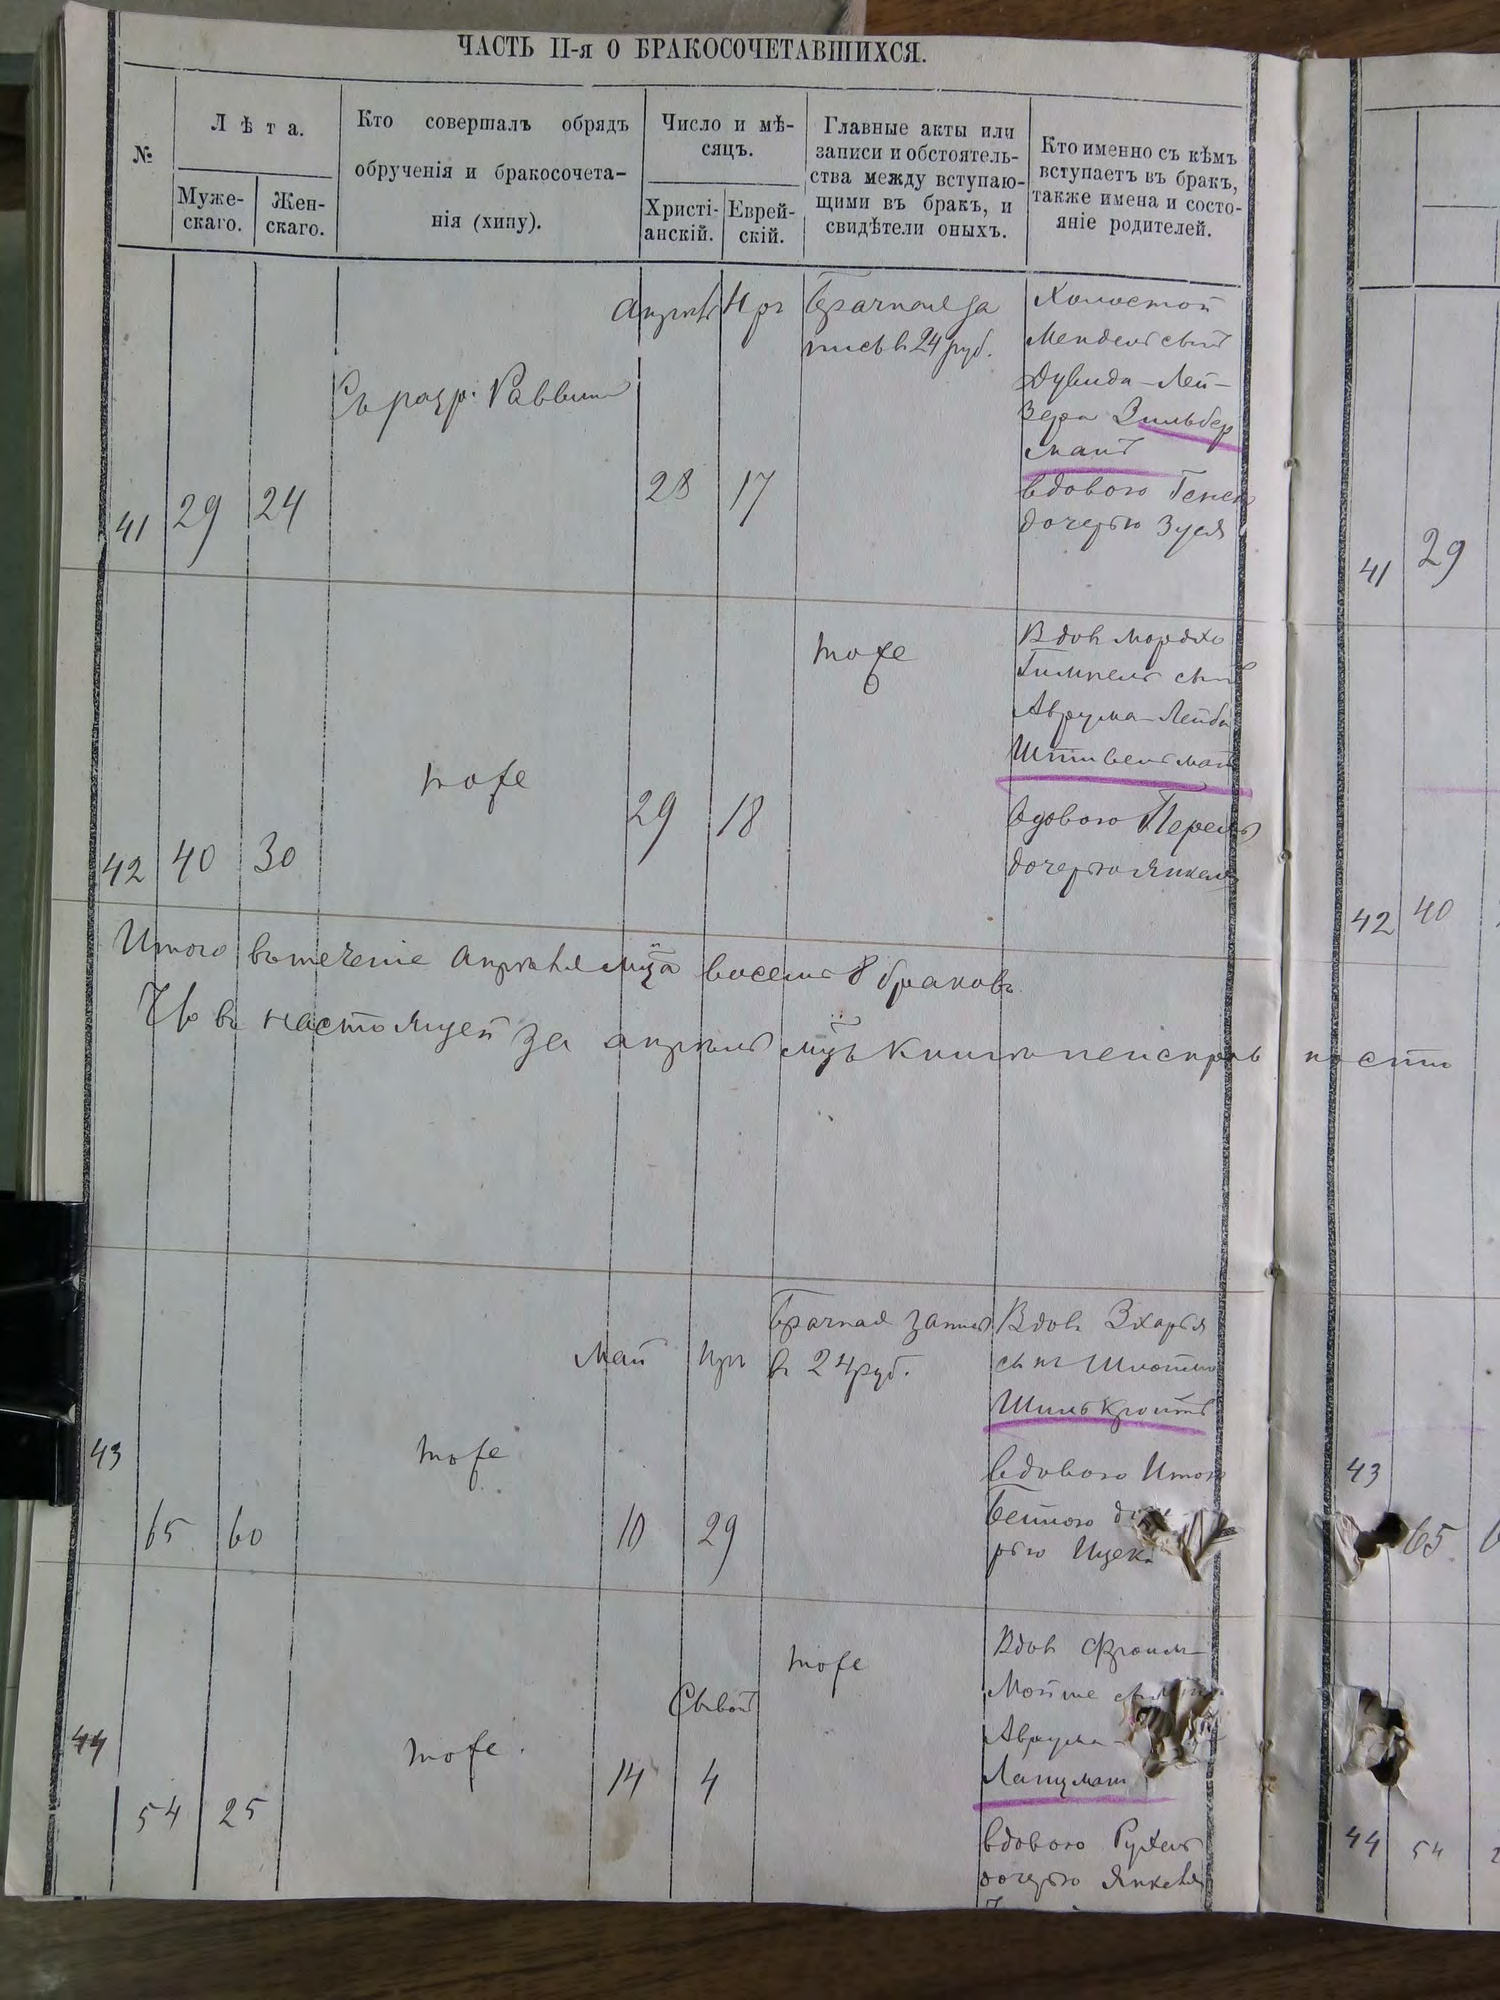 ЧАСТЬ II-я О БРАКОСОЧЕТАВШИХСЯ.
№
Лѣта.
Муже-
скаго.
Жен-
скаго.
Кто совершалъ обрядъ
обрученія и бракосочета-
нія (хипу).
Число и мѣ-
сяцъ.
Христі-
анскій.
Еврей-
скій.
Главные акты или
записи и обстоятель-
ства между вступаю-
щими въ бракъ, и
свидѣтели оныхъ.
Кто именно съ кѣмъ
вступаетъ въ бракъ,
также имена и состо-
яніе родителей.
41
29
24
Съ разр. Раввина
28
17
Брачная за
пись в 24 руб.
Холостой
Мендель сынъ
Дувида-Лей-
зера Зильбер
манъ
вдовою
дочерью Зуся
42
40
30
тоже
29
18
тоже
Вдов Мордко
Гимпель сынъ
Аврума-Лейба
Штивельман
вдовою Перель
дочерью Янкеля
Итого въ теченіе апрѣля восемь 8 браковъ
Что въ настоящей за апрѣль книгѣ неисправ ности
43
65
60
тоже
Май
10
29
Брачная запись
в 24 руб.
Вдов Зхарья
сын
Шилькройтъ
вдовою
рью Ицека
44
54
25
тоже.
14
Сывон
4
тоже
Вдов Фроим-
Мойше
Аврума-
Лацман
вдовою Рухель
дочерью Янкеля
41
29
42
40
43
65
44
54